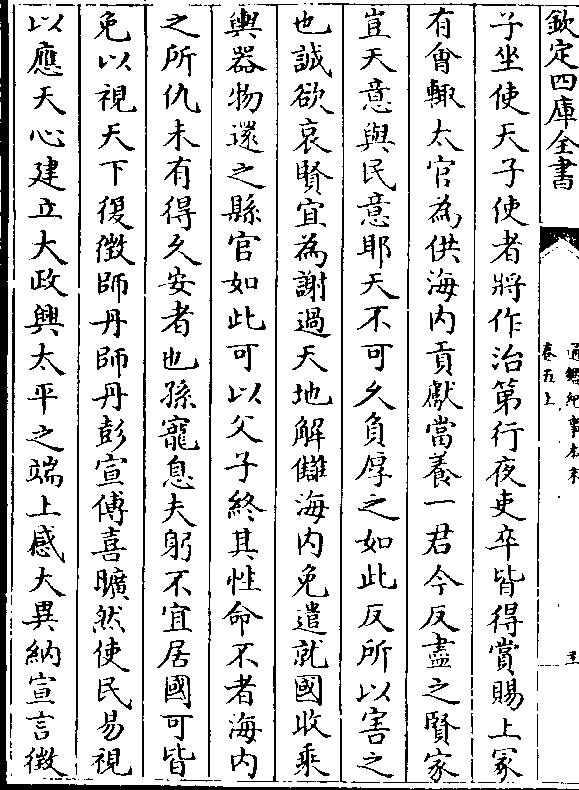 欽定四庫全書
通鑑紀事本末
卷五上
子坐使天子使者將作治第行夜吏卒皆得賞賜上冢
有會輒太官為供海内貢獻當養一君今反盡之賢家
豈天意與民意耶天不可久負厚之如此反所以害之
也誠欲哀賢宜為謝過天地解讎海内免遣就國收乘
輿器物還之縣官如此可以父子終其性命不者海内
之所仇未有得久安者也孫寵息夫躬不宜居國可皆
免以視天下復徴師丹師丹彭宣傅喜曠然使民易視
以應天心建立大政興太平之端上感大異納宣言徴